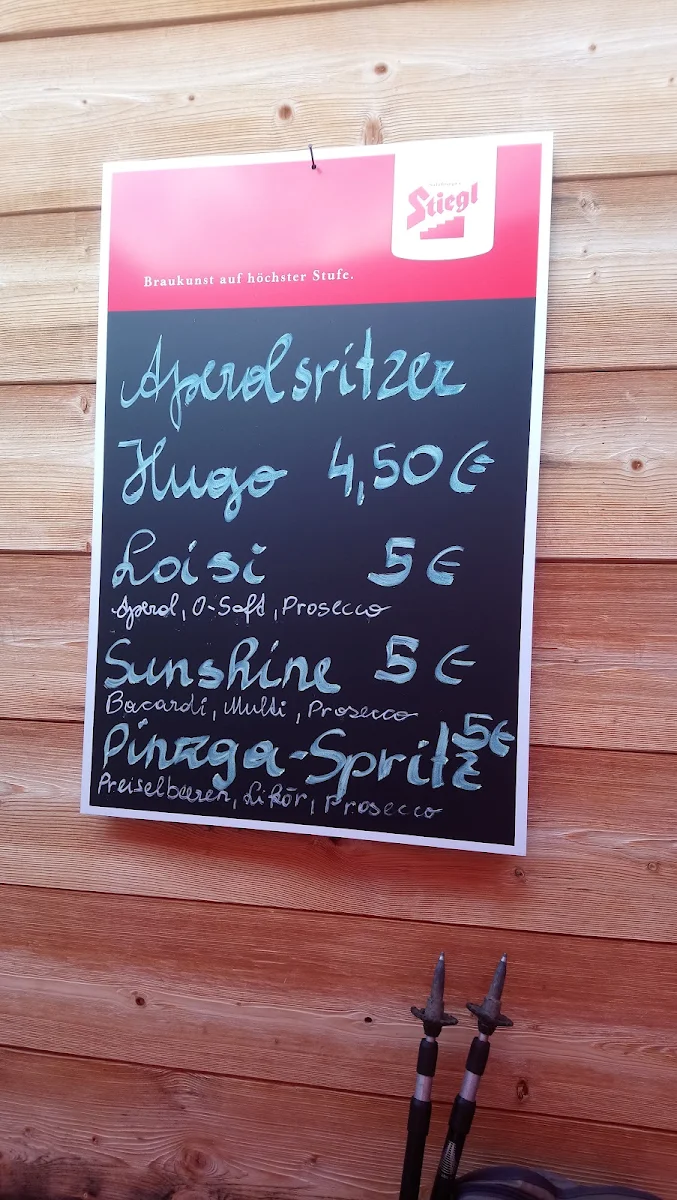 Salzburger
Stiegl
Braukunst auf höchster Stufe.
Aperolsritzer
Hugo 4,50 €
Loisi 5 €
Aperol, O-Saft, Prosecco
Sunshine 5 €
Bacardi, Multi, Prosecco
Pinzga-Spritz 5€
Preiselbeeren, Likör, Prosecco